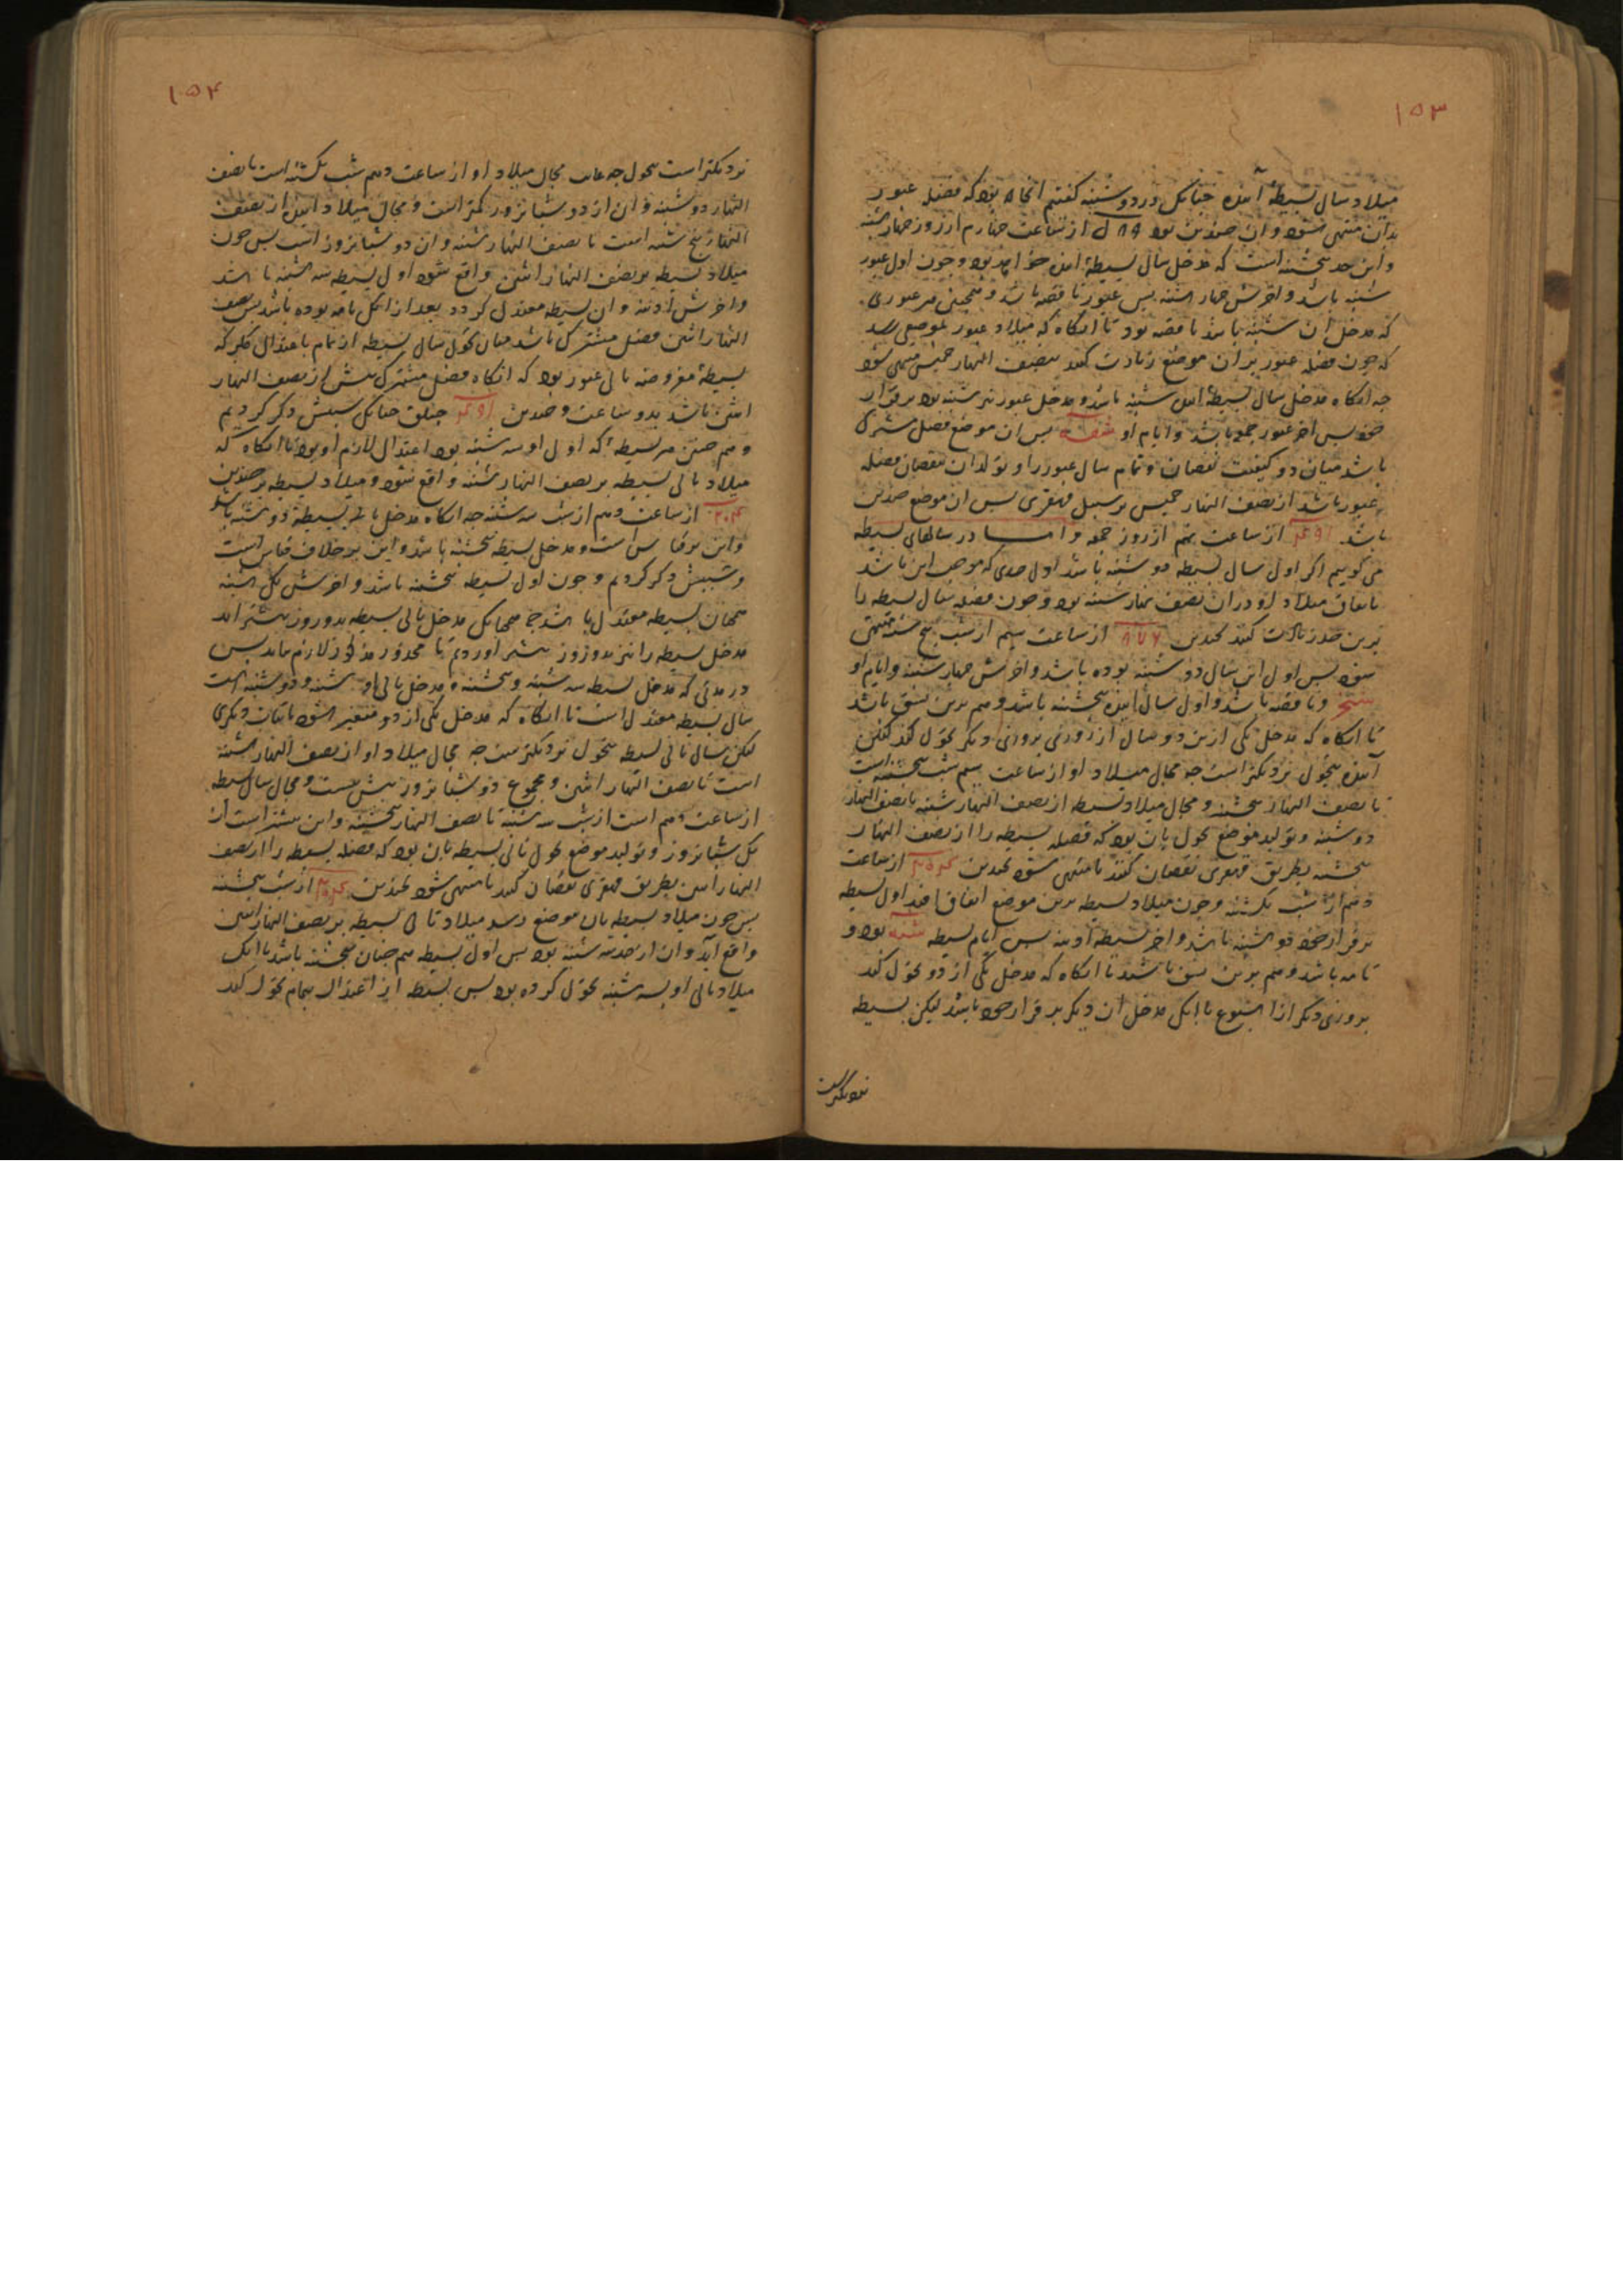 ۱۵۳
میلاد سال بسیطهٔ آینده چنانک در دوشنبه گفتیم آنجا بود که فضله عبور
بدان منتهی شود و آن حد این بود از ساعت چهارم از روز چهارشنبه
و این حد سه‌شنبه است که مدخل سال بسیطهٔ آینده خواهد بود و چون اول عبور
شنبه باشد و آخرش چهارشنبه بس عبور ناقصه باشد و همچنین هر عبوری
که مدخل آن شنبه باشد ناقصه بود تا آنگاه که میلاد عبور بموضعی رسد
که چون فضله عبور بر آن موضع زیادت کنند بنصف النهار خمیس منتهی شود
چه آنگاه مدخل سال بسیطهٔ آینده شنبه باشد و مدخل عبور نیز شنبه بود برقرار
خود بس آخر عبور جمعه باشد و ایام او بس آن موضع فصل مشترک
باشد میان دو کیفیت نقصان و تمام سال عبور را و تولد آن بنقصان فضله
عبور باشد از نصف النهار خمیس بر سبیل قهقری بس آن موضع حد این
باشد از ساعت نهم از روز جمعه و امـا در سالهای بسیطه
می کوییم اکر اول سال بسیطه دوشنبه باشد اول حدی که موجب این باشد
باتفاق میلاد او در آن نصف نهار شنبه بود و چون فضله سال بسیطه را
برین حد زیادت کنند بحد این ۸۷۶ از ساعت نهم از شب پنج شنبه منتهی
شود بس اول این سال دوشنبه بوده باشد و آخرش چهارشنبه و ایام او
شنج و ناقصه باشد و اول سال آینده پنجشنبه باشد و هم برین نسق باشد
تا آنگاه که مدخل یکی ازین دو سال از روزی بروزی دیکر تحول کند لیکن
آینده بتحول نزدیکتر است چه مجال میلاد او از ساعت نهم شب پنجشنبه است
تا نصف النهار پنجشنبه و مجال میلاد بسیطه از نصف النهار شنبه تا نصف النهار
دوشنبه و تولید موضع تحول بآن بود که فضله بسیطه را از نصف النهار
پنجشنبه بطریق قهقری نقصان کنند تا منتهی شود بحد این از ساعت
دهم از شب یکشنبه و چون میلاد بسیطه برین موضع اتفاق افتد اول بسیطه
برقرار خود دوشنبه باشد و آخر بسیطه آدینه بس ایام بسیطه شنه بود و
تامه باشد و هم برین نسق باشد تا آنگاه که مدخل یکی از دو تحول کند
بروزی دیکر از اسبوع تا آنک مدخل آن دیکر بر قرار خود باشد لیکن بسیطه
نزدیکتر است
۱۵۴
نزدیکتر است بتحول چه مجال میلاد او از ساعت دهم شب یکشنبه است تا نصف
النهار دوشنبه و آن از دو شبانروز کمتر است و مجال میلاد آینده از نصف
النهار پنج شنبه است تا نصف النهار شنبه و آن دو شبانروز است بس چون
میلاد بسیطه بر نصف النهار اثنین واقع شود اول بسیطه سه شنبه باشد
و آخرش آدینه و آن بسیطه معتدل کردد بعد از آنک تامه بوده باشد بس نصف
النهار اثنین فصل مشترک باشد میان تحول سال بسیطه از تمام باعتدال مکر که
بسیطهٔ مفروضه تالی عبور بود که آنگاه فصل مشترک پیش از نصف النهار
اثنین باشد بدو ساعت و حد این چنانک سببش ذکر کردیم
و هم چنین هر بسیطه که اول او سه شنبه بود اعتدال لازم او بود تا آنگاه که
میلاد تالی بسیطه بر نصف النهار شنبه واقع شود و میلاد بسیطه بر حد این
از ساعت دهم از شب سه شنبه چه آنگاه مدخل تالی بسیطه دوشنبه باشد
و این بر قیاس است و مدخل بسیطه پنجشنبه باشد و این بر خلاف قیاس است
و سببش ذکر کردیم و چون اول بسیطه پنجشنبه باشد و آخرش یکشنبه
همچنان بسیطه معتدل باشد چه همچنانک مدخل تالی بسیطه بدو روز بیشتر آمد
مدخل بسیطه را نیز بدو روز بیشتر آوردیم تا محذور مذکور لازم نیاید بس
در مدتی که مدخل بسیطه سه شنبه و پنجشنبه و مدخل تالی او شنبه و دوشنبه است
سال بسیطه معتدل است تا آنگاه که مدخل یکی از دو متغیر شود باثبات دیکری
لیکن سال تالی بسیطه بتحول نزدیکتر است چه مجال میلاد او از نصف النهار شنبه
است تا نصف النهار اثنین و مجموع دو شبانروز بیش نیست و مجال سال بسیطه
از ساعت دهم است از شب سه شنبه تا نصف النهار پنجشنبه و این بیشتر است از
یک شبانروز و تولید موضع تحول تالی بسیطه بآن بود که فضله بسیطه را از نصف
النهار اثنین بطریق قهقری نقصان کنند تا منتهی شود بحد این از شب پنجشنبه
بس چون میلاد بسیطه بآن موضع رسد میلاد تالی بسیطه بر نصف النهار اثنین
واقع آید و آن از حد سه شنبه بود بس اول بسیطه هم چنان پنجشنبه باشد با آنک
میلاد تالی او بسه شنبه تحول کرده بود بس بسیطه از اعتدال بتمام تحول کند